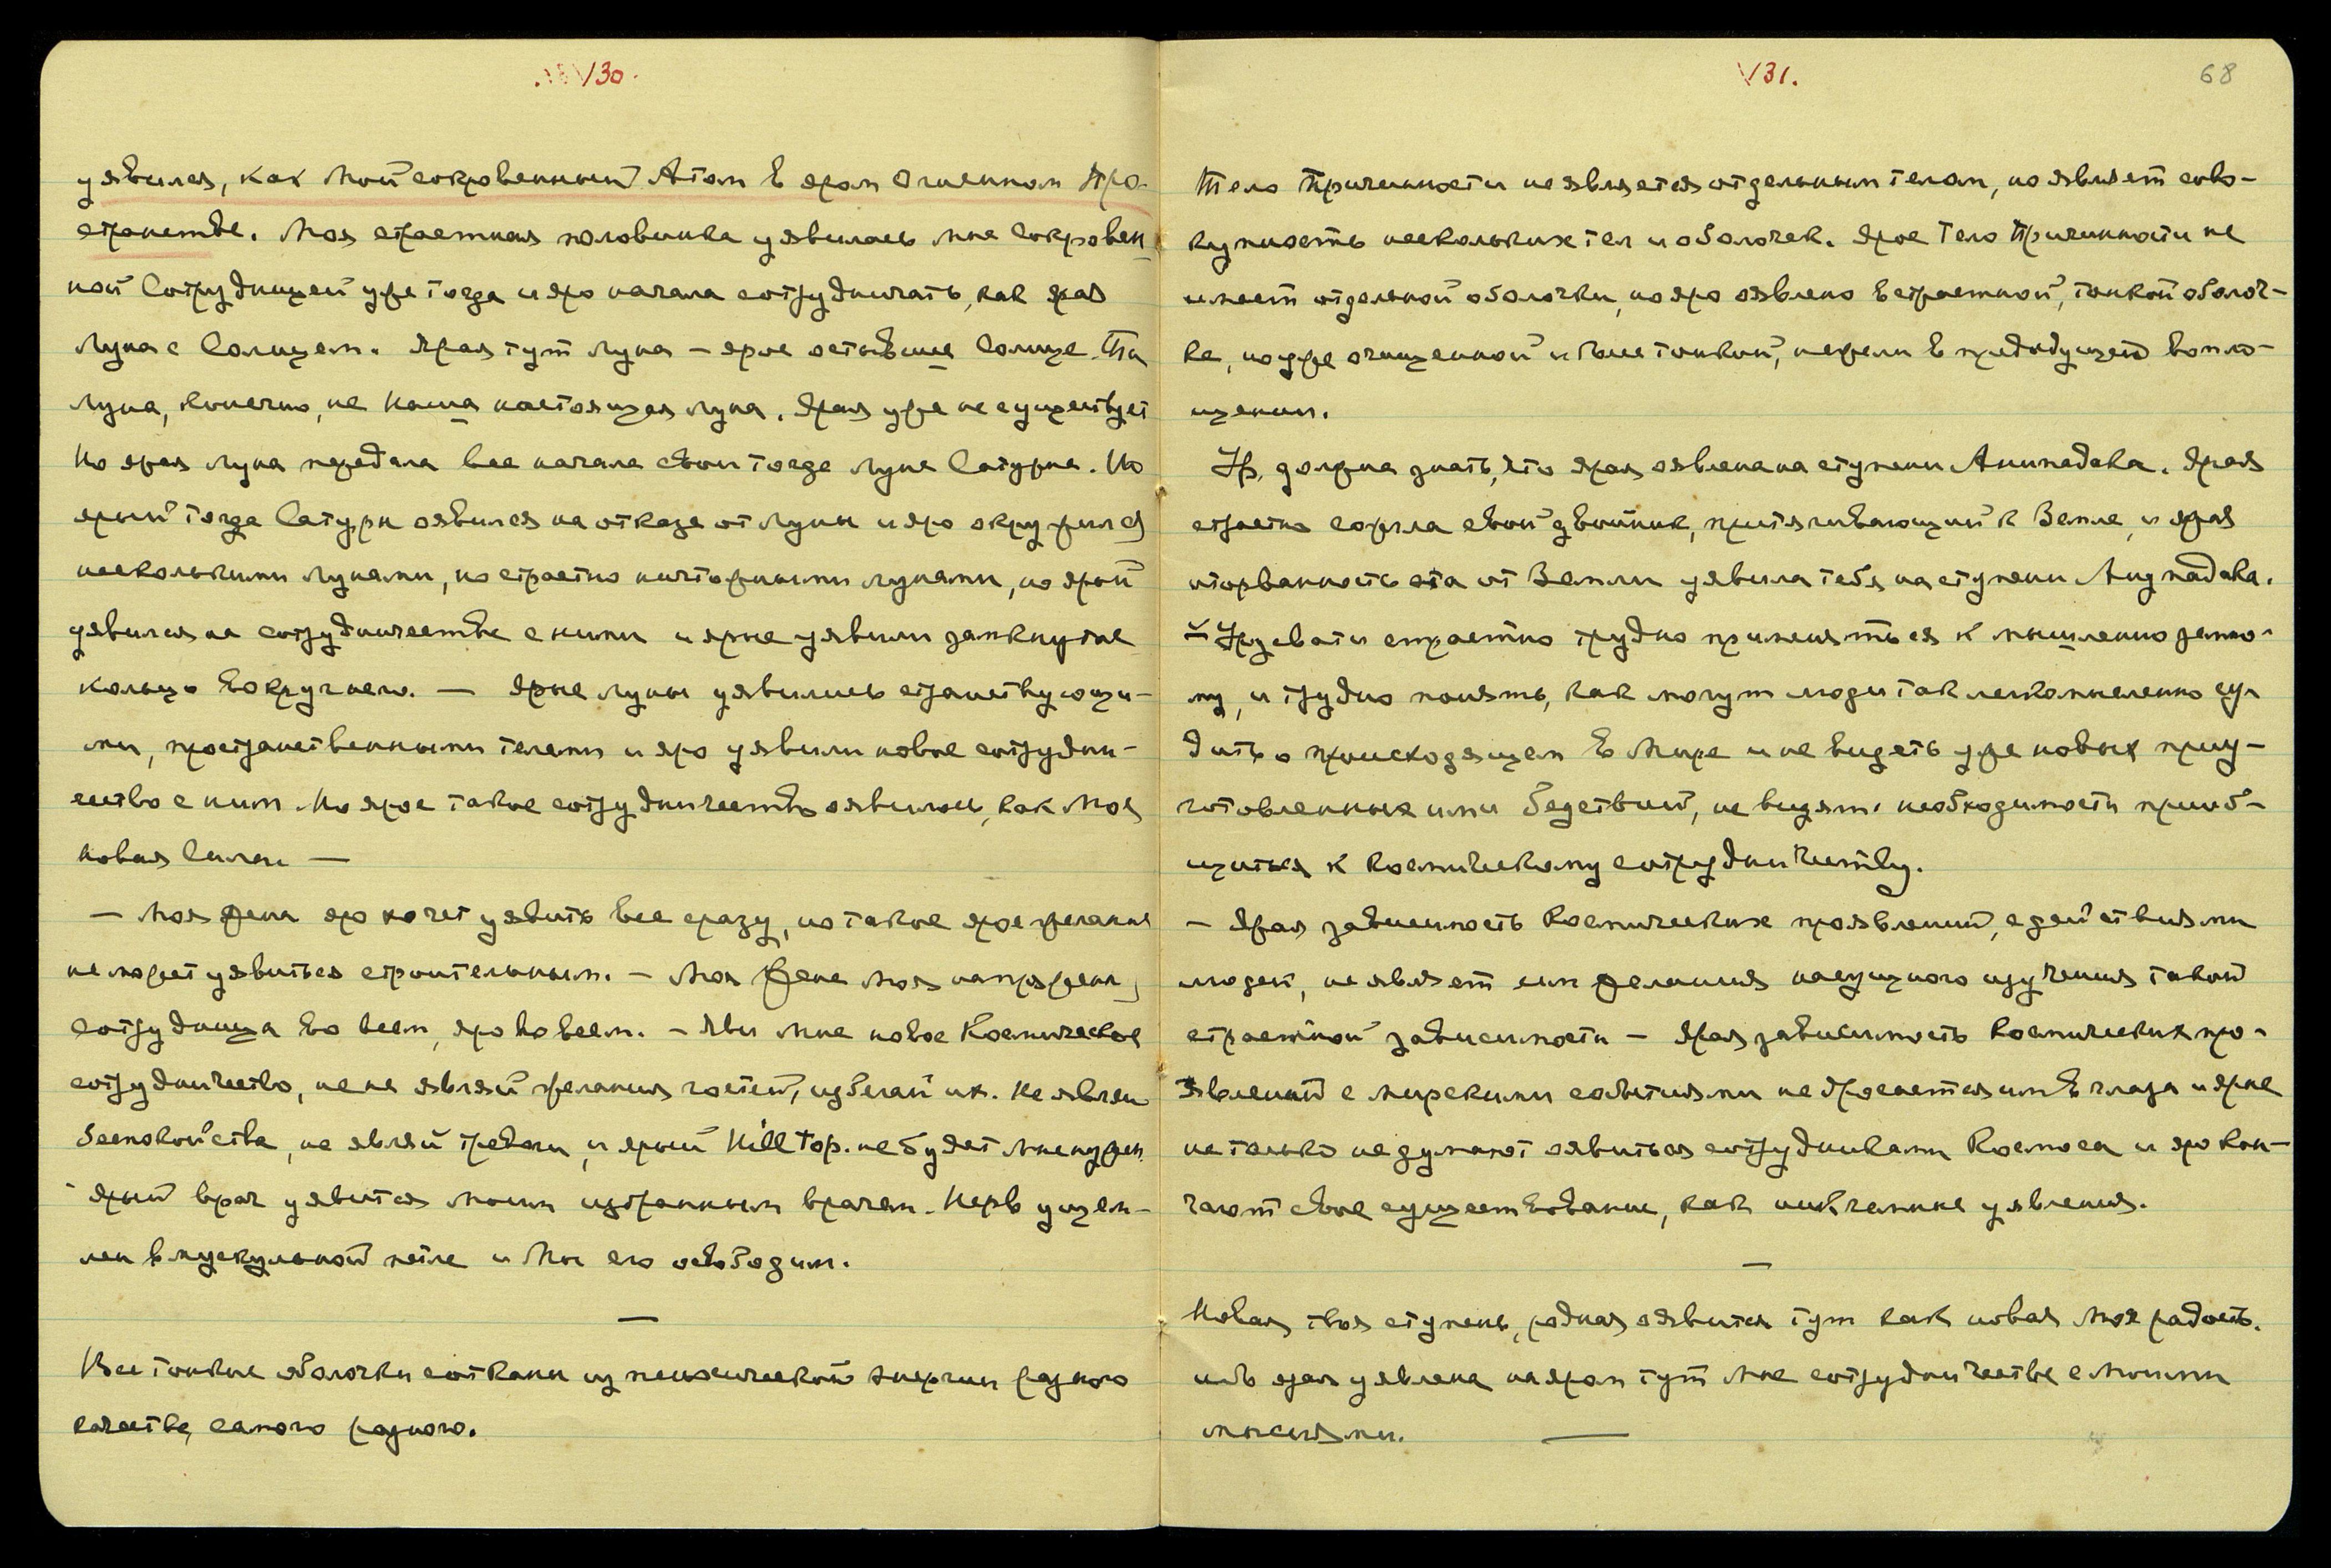 130.
уявился, как Мой сокровенный Атом в яром Огненном Про-
странстве. Моя страстная половинка уявилась мне Сокровен-
ной Сотрудницей уже тогда и яро начала сотрудничать, как ярая
Луна с Солнцем. Ярая тут Луна – ярое остывшее Солнце. Та
Луна, конечно, не Наша настоящая Луна. Ярая уже не существует
Но ярая Луна передала все начала свои тогда Луне Сатурна. Но
ярый тогда Сатурн оявился на отказе от Луны и яро окружился
несколькими лунами, но страстно ничтожными лунами, но ярый
уявился на сотрудничестве с ними и ярые уявили замкнутое
кольцо вокруг него. — Ярые луны уявились странствующи-
ми, пространственными телами и яро уявили новое сотрудни-
чество с ним. Но ярое такое сотрудничество оявилось, как Моя
новая Сила —
— Моя Жена яро хочет уявить все сразу, но такое ярое желание
не может уявиться строительным. – Моя Жена Моя напряженная
сотрудница во всем, яро во всем. – Яви мне новое Космическое
сотрудничество, не являй желания гостей, избегай их. Не являй
беспокойства, не являй тревоги, и ярый Hill top. не будет Мне нужен
ярый врач уявится Моим избранным врачем. Нерв ущем-
лен в мускульной петле и Мы его освободим.
—
Все тонкие оболочки сотканы из психической энергии разного
качества, самого разного.
131.
68
Тело Причинности не является отдельным телом, но являет сово-
купность нескольких тел и оболочек. Ярое Тело Причинности не
имеет отдельной оболочки, но яро оявлено в страстной, тонкой оболоч-
ке, но уже очищенной и более тонкой, нежели в предыдущем вопло-
щении.
Ур. должна знать, что ярая оявлена на ступени Анупадака. Ярая
страстно сожгла свой двойник, притягивающий к Земле, и ярая
оторванность эта от Земли уявила тебя на ступени Анупадака.
– Урусвати страстно трудно применяться к мышлению земно-
му, и трудно понять, как могут люди так легкомысленно су-
дить о происходящем в Мире и не видеть уже новых приу-
готовленных ими бедствий, не видят необходимости приоб-
щиться к Космическому сотрудничеству.
– Ярая зависимость Космических проявлений, с действиями
людей, не являет им желания насущного изучения такой
страстной зависимости – Ярая зависимость Космических про-
явлений с мирскими событиями не бросается им в глаза и ярые
не только не думают оявиться сотрудниками Космоса и яро кон-
чают свое существование, как никчемные уявления.
—
Новая твоя ступень, родная оявится тут как новая Моя радость.
ибо ярая уявлена на яром тут Мне сотрудничестве с Моими
мыслями. —